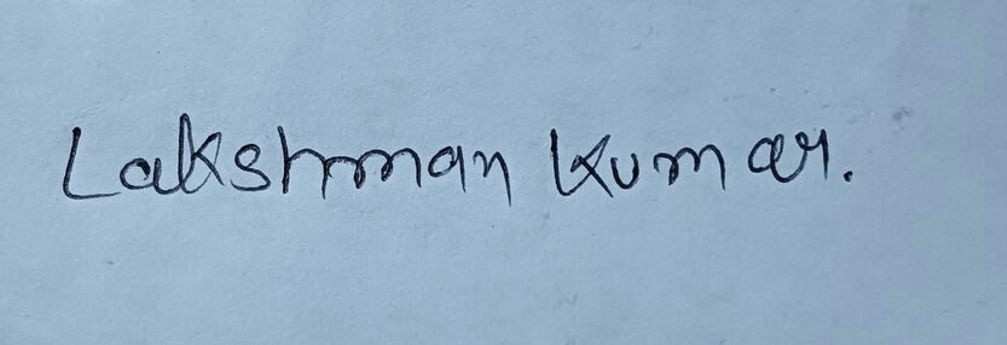 Lakshman Kumar.